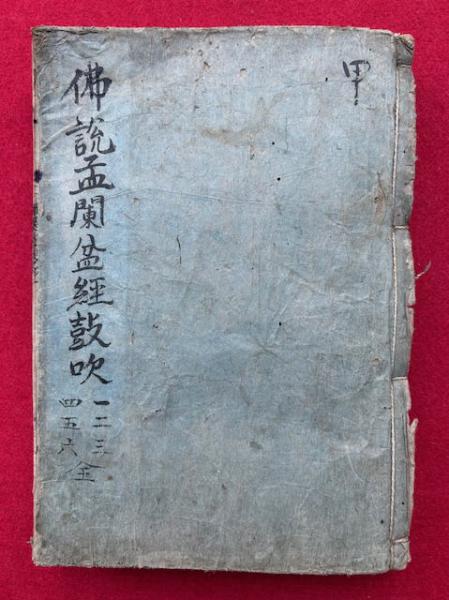 甲
佛説孟闌盆經鼓吹
一二三
四五六全